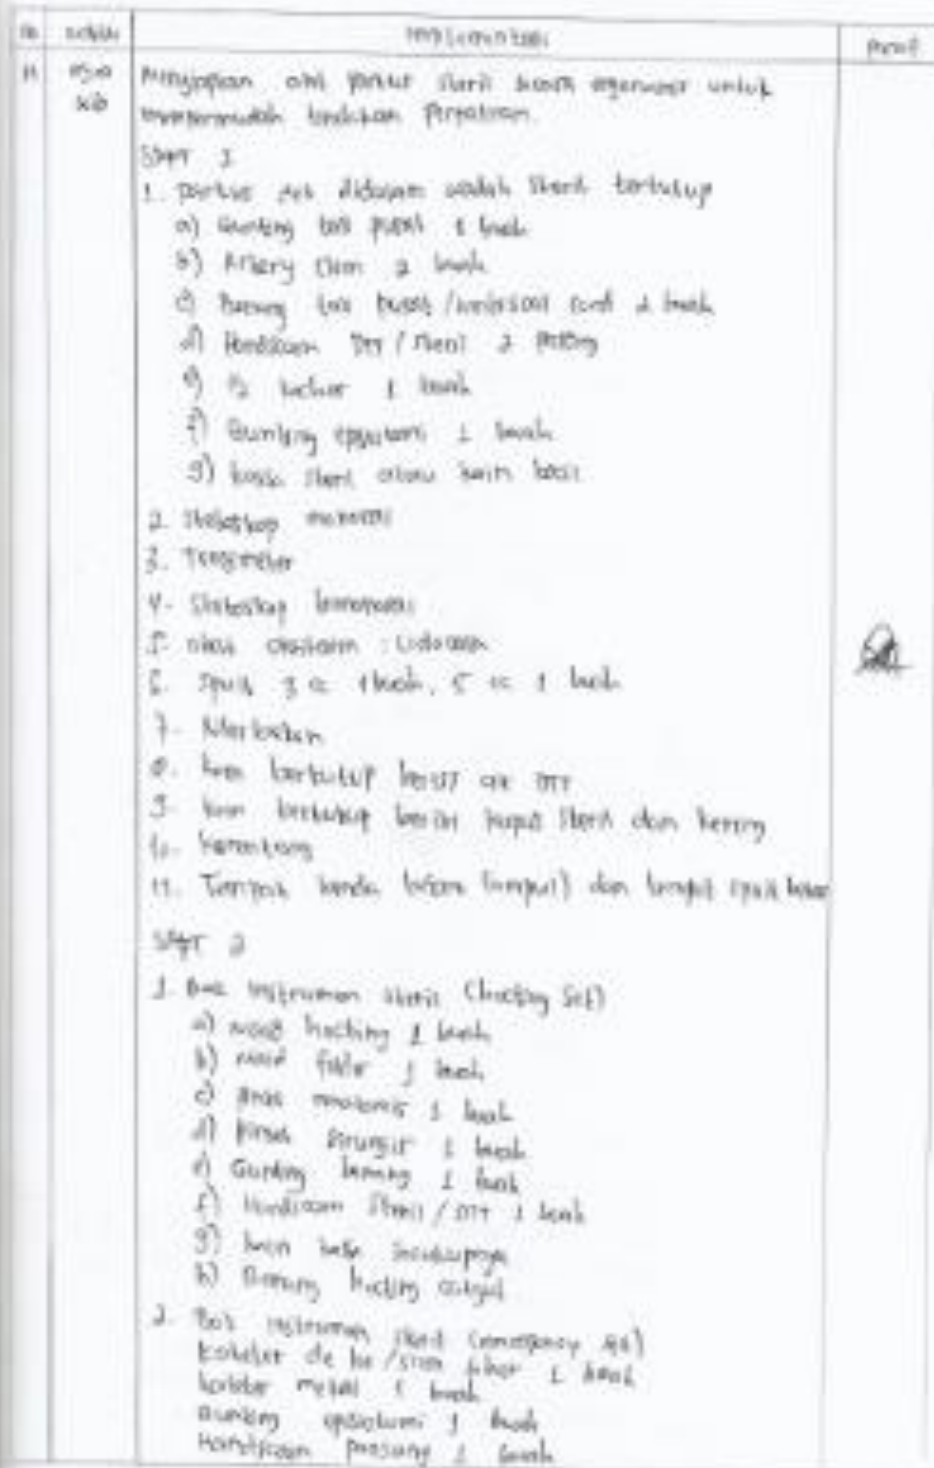 No Implementasi Paraf
11 Menyiapkan alat partus steril secara ergonomis untuk
WIB mempermudah tindakan Persalinan.
SAFT 1
1. Partus set didalam wadah steril tertutup
a) Gunting tali pusat 1 buah
b) Artery Klem 2 buah
c) Benang tali pusat / 2 buah
d) Handscoon DTT / steril 2 pasang
e) 1/2 kocher 1 buah
f) Gunting episiotomi 1 buah
g) kassa steril atau kain kecil
2. Stetoskop monoral
3. Tensimeter
4. Stetoskop
5. obat : Lidocain
6. Spuit 3 cc 1 buah, 5 cc 1 buah
7.
8. kom tertutup berisi air DTT
9. kom tertutup berisi kapas steril dan kering
10. Korentang
11. Tempat (ampul) dan tempat spuit bekas
SAFT 2
1. Bak instrumen steril (hecting set)
a) hecting 1 buah
b) 1 buah
c) Pinset anatomis 1 buah
d) Pinset sirurgis 1 buah
e) Gunting benang 1 buah
f) Handscoon Steril / DTT 1 buah
g) kain kasa secukupnya
h) Benang hecting catgut
2. Bak instrumen steril (emergency set)
kateter de lee / slim seher 1 buah
kateter metal 1 buah
Gunting episiotomi 1 buah
Handscoon panjang 1 buah